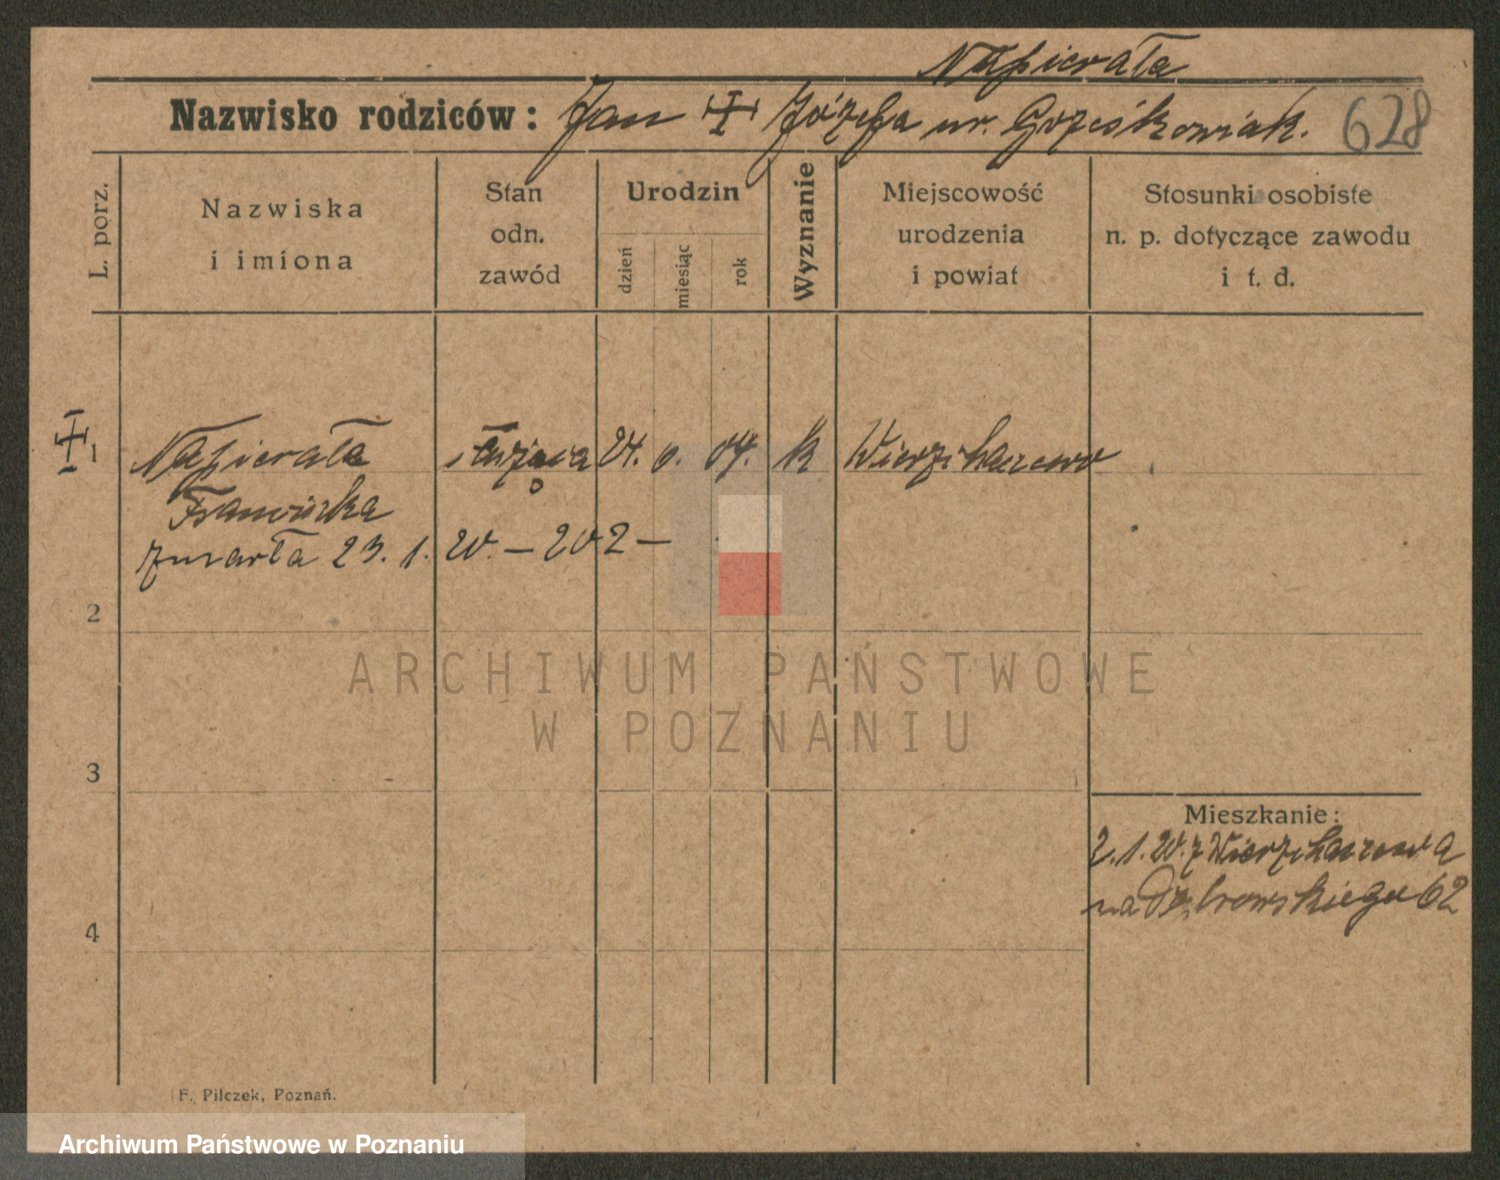 Napierała
Nazwisko rodziców: Jan Józefa ur. Grześkowiak. 628
L. porz.
Nazwiska
i imiona
Stan
odn.
zawód
Urodzin
dzień
miesiąc
rok
Wyznanie
Miejscowość
urodzenia
i powiat
Stosunki osobiste
n. p. dotyczące zawodu
i t. d.
1 Napierała służąca 24. 04. k
Franciszka
zmarła 23. 1. 20. — 202 —
2
3
4
Mieszkanie:
2. 1. 20. z
na Dąbrowskiego 62
F. Pilczek, Poznań.
ARCHIWUM PAŃSTWOWE
W POZNANIU
Archiwum Państwowe w Poznaniu